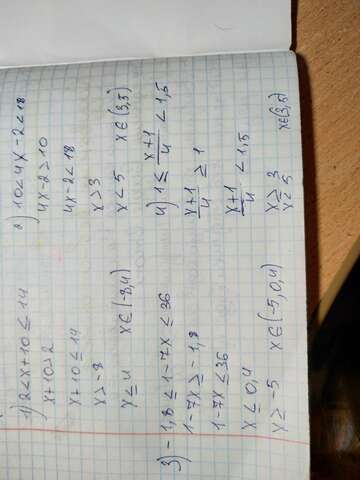 1) 2 < x + 10 ≤ 14
x + 10 > 2
x + 10 ≤ 14
x > -8
x ≤ 4 x ∈ (-8, 4)
2) 10 < 4x - 2 < 18
4x - 2 > 10
4x - 2 < 18
x > 3
x < 5 x ∈ (3, 5)
3) -1,8 ≤ 1 - 7x ≤ 36
1 - 7x ≥ -1,8
1 - 7x ≤ 36
x ≤ 0,4
x ≥ -5 x ∈ (-5, 0,4)
4) 1 ≤ (x+1)/4 < 1,5
(x+1)/4 ≥ 1
(x+1)/4 < 1,5
x ≥ 3
x < 5 x ∈ (3, 5)